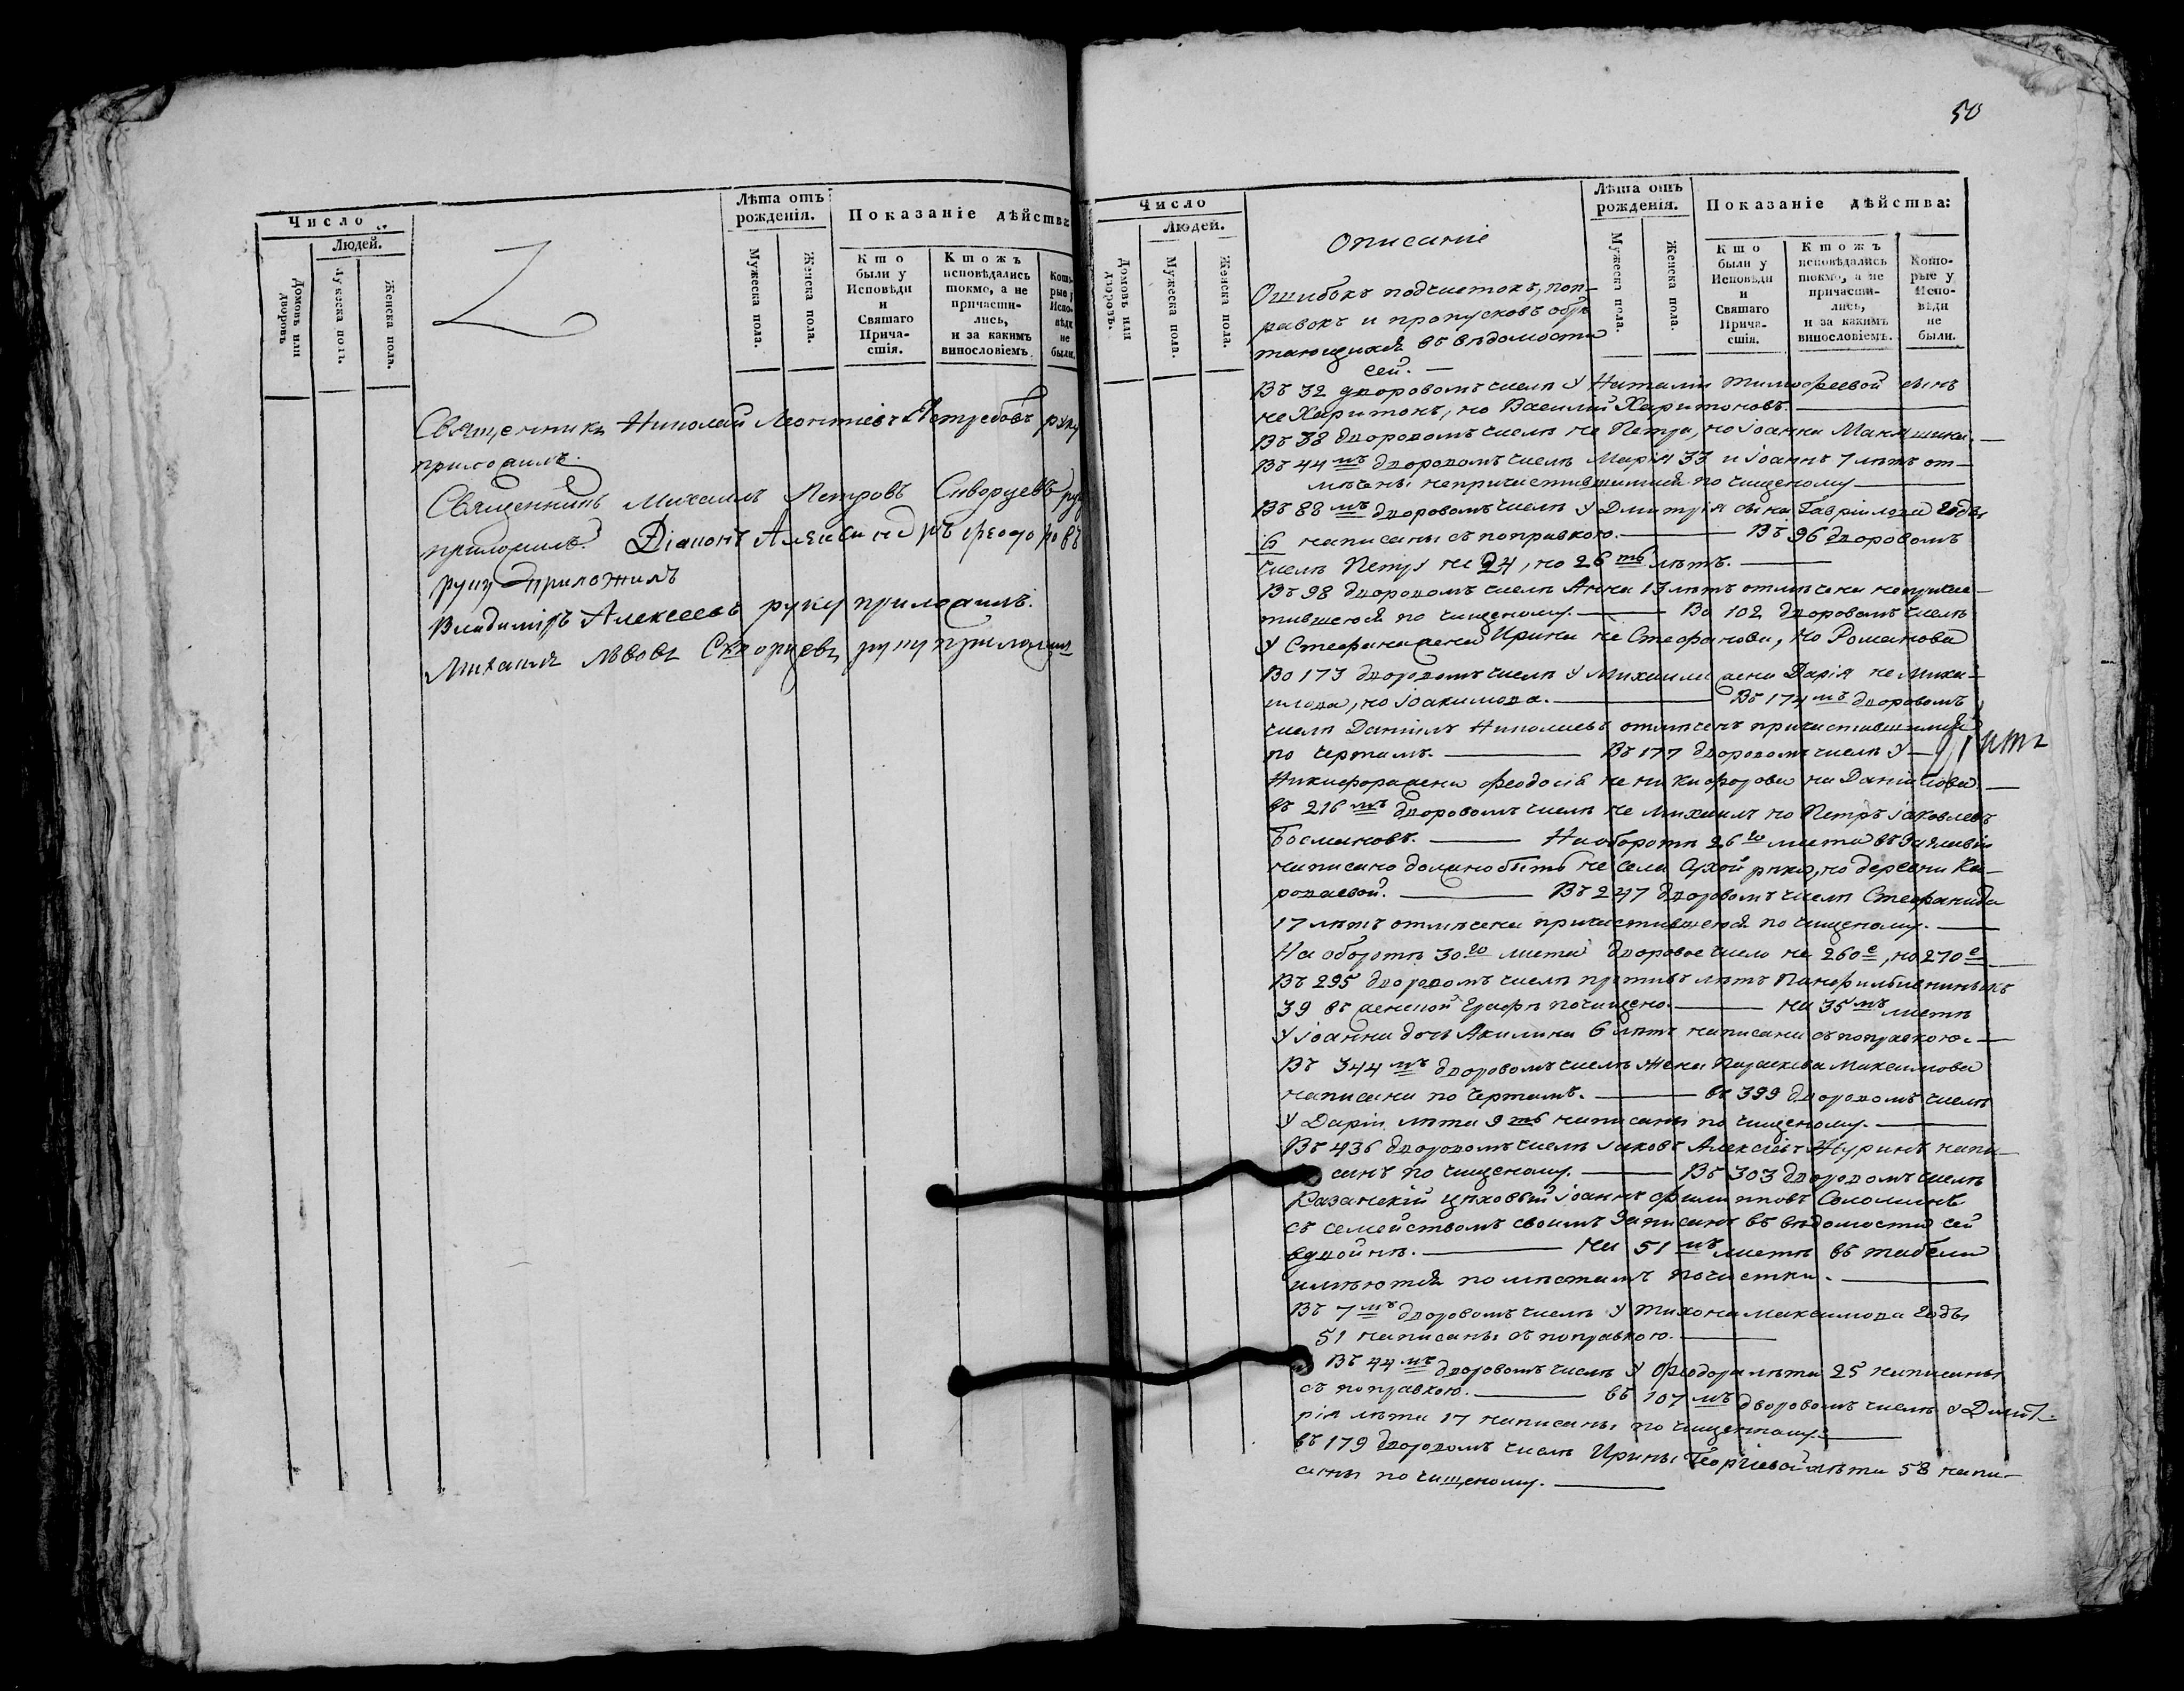 Число
Людей.
Домовъ или дворовъ.
Мужеска пола.
Женска пола.
Лѣта отъ рожденія.
Мужеска пола.
Женска пола.
Показаніе дѣйства
Кто были у Исповѣди и Святаго Причастія.
Ктожъ исповѣдались токмо, а не причастились, и за какимъ винословіемъ.
Которые у Исповѣди не были.
Священникъ Николай Леонтіевъ Ястребовъ руку
приложилъ.
Священникъ Михаилъ Петровъ Скворцевъ руку
приложилъ. Діаконъ Александръ Феодоровъ
руку приложилъ
Владимиръ Алексеевъ руку приложилъ.
Михаилъ Львовъ Скворцевъ руку приложилъ
50
Число
Людей.
Домовъ или дворовъ.
Мужеска пола.
Женска пола.
Лѣта отъ рожденія.
Мужеска пола.
Женска пола.
Показаніе дѣйства:
Кто были у Исповѣди и Святаго Причастія.
Ктожъ исповѣдались токмо, а не причастились, и за какимъ винословіемъ.
Которые у Исповѣди не были.
Описаніе
Ошибокъ подчистокъ, поп-
равокъ и пропусковъ обрѣ
тающихся въ вѣдомости
сей. —
Въ 32 дворовомъ числѣ у Наталіи Тимофеевой сынъ
не Харитонъ, но Василій Харитоновъ.
Въ 38 дворовомъ числѣ не Петра, но Іоанна
Въ 44 мъ дворовомъ числѣ Марія 33 и Іоаннъ 7 лѣтъ от-
мѣчены непричастившимися по чищеному
Въ 88 мъ дворовомъ числѣ у Дмитрія сына Гавріилова годы
16 написаны съ поправкою. — Въ 96 дворовомъ
числѣ Петру не 24, но 26 ть лѣтъ.
Въ 98 дворовомъ числѣ Анна 13 лѣтъ отмѣчена непричас-
тившеюся по чищеному. — Во 102 дворовомъ числѣ
у Стефана жена Ирина не Стефанова, но Романова
Во 173 дворовомъ числѣ у Михаила жена Дарія не Миха-
илова, но Іоакимова. — Въ 174 мъ дворовомъ
числѣ Даніилъ Николаевъ отмѣченъ причастившимся
по чертамъ. — Въ 177 дворовомъ числѣ у
Никифора жена Феодосія не Никифорова но Даніилова.
въ 216 мъ дворовомъ числѣ не Михаилъ но Петръ Іаковлевъ
Босмановъ. — На оборотѣ 26 го листа въ заглавіи
написано должно быть не села Сухой рѣки, но деревни Ка-
роваевой. — Въ 247 дворовомъ числѣ Стефанида
17 лѣтъ отмѣчена причастившеюся по чищеному.
На оборотѣ 30 го листа дворовое число не 260 е, но 270 е
Въ 295 дворовомъ числѣ противъ лѣтъ
39 въ женской графѣ почищено. — на 35 мъ листѣ
у Іоанна дочь Акилина 6 лѣтъ написана съ поправкою.
Въ 344 мъ дворовомъ числѣ жена Параскева Максимова
написана по чертамъ. — въ 399 дворовомъ числѣ
у Даріи лѣта 9 ть написаны по чищеному.
Въ 436 дворовомъ числѣ Іаковъ Алексіевъ Журинъ напи-
санъ по чищеному. — Въ 303 дворовомъ числѣ
Казанскій цѣховый Іоаннъ Филипповъ Соломинъ
съ семействомъ своимъ записанъ въ вѣдомости сей
вдвойнѣ. — на 51 мъ листѣ въ табели
имѣются по мѣстамъ почистки.
Въ 7 мъ дворовомъ числѣ у Тихона Максимова годы
51 написаны съ поправкою.
Въ 44 мъ дворовомъ числѣ у Феодора лѣта 25 написаны
съ поправкою. — въ 107 мъ дворовомъ числѣ у Дмит-
рія лѣта 17 написаны по чищенному.
въ 179 дворовомъ числѣ Ирины Георгіевой лѣта 58 напи-
саны по чищеному.